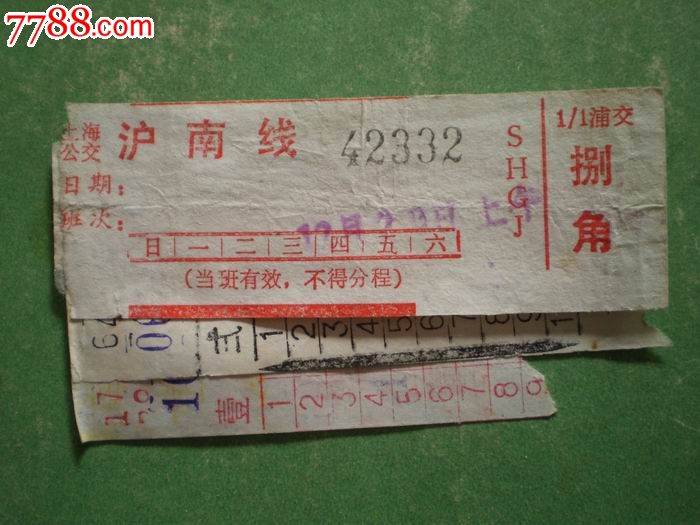 7788.com
上海
公交
沪南线
42332
日期：
班次：
12月23日 上午
日 一 二 三 四 五 六
(当班有效，不得分程)
SHGJ
1/1浦交
捌角
64
06
贰 1 2 3 4 5 6 7 8 9 1
17
壹 1 2 3 4 5 6 7 8 9